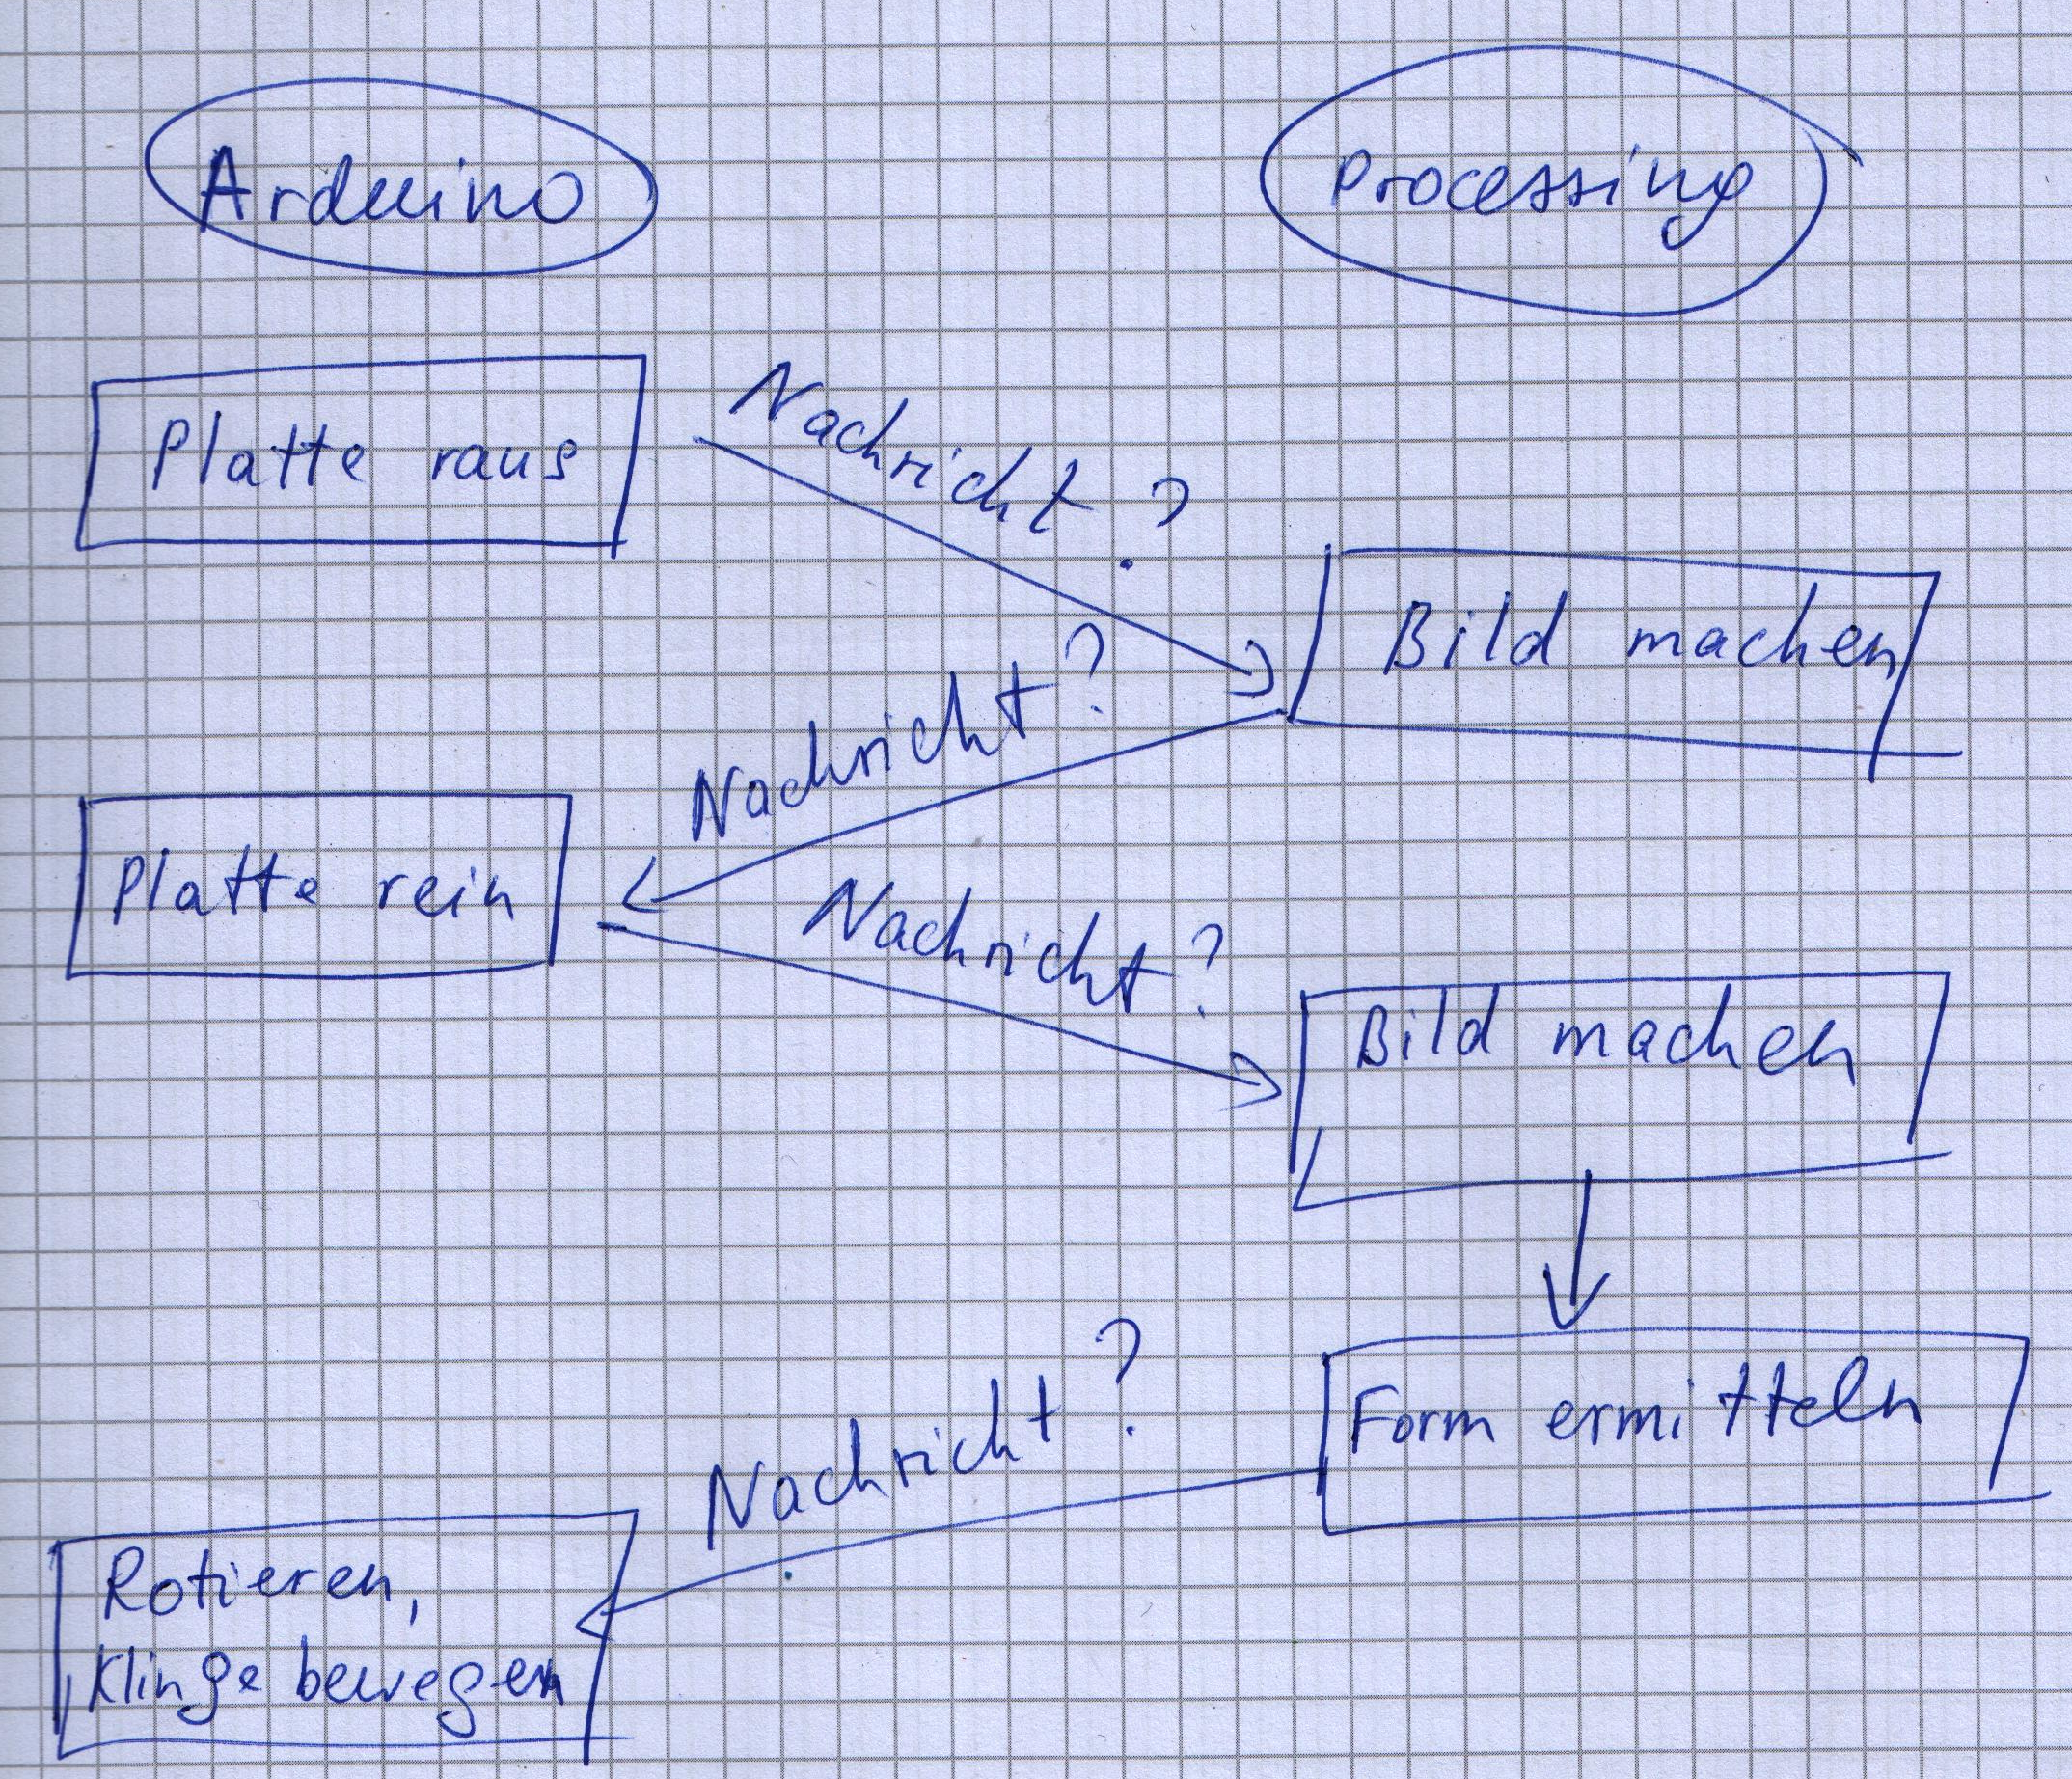 Arduino
Processing
Platte raus
Nachricht ?
Bild machen
Nachricht ?
Platte rein
Nachricht ?
Bild machen
Form ermitteln
Nachricht ?
Rotieren,
Klinge bewegen